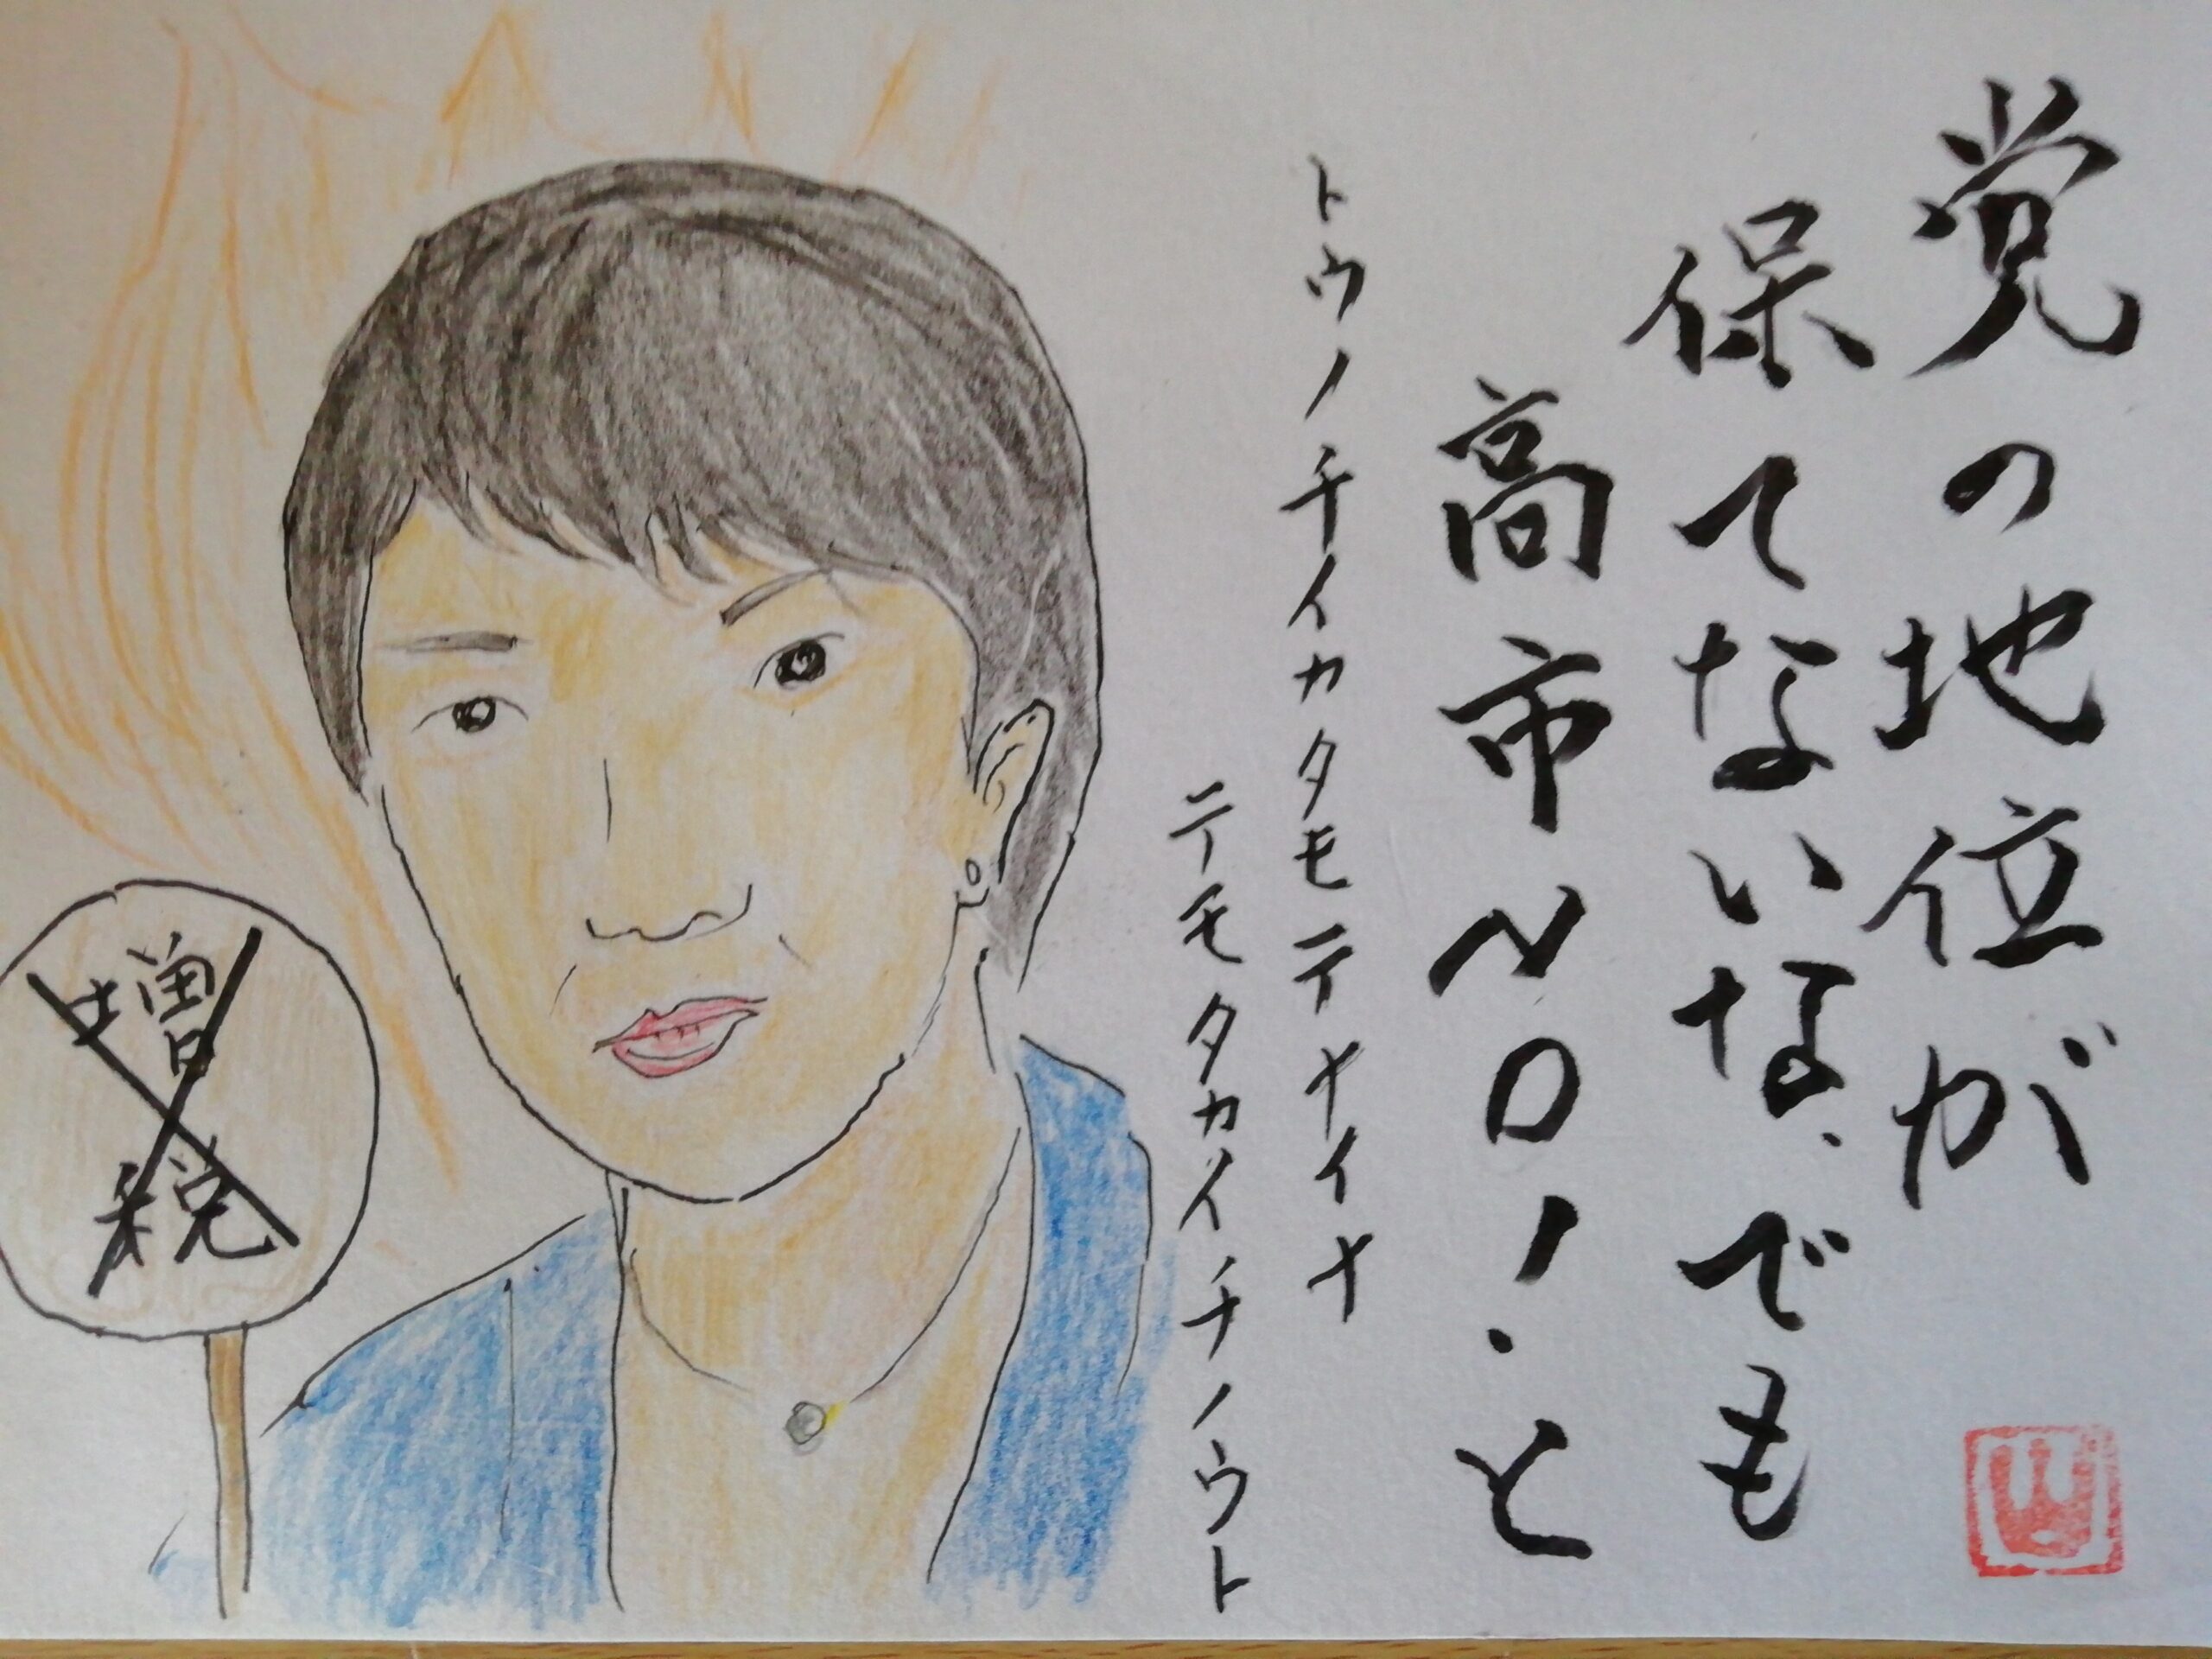 党の地位が
保てないな、でも
高市NO!と
トウノチイカタモテナイナ
テモタカイチノウト
増
税
山